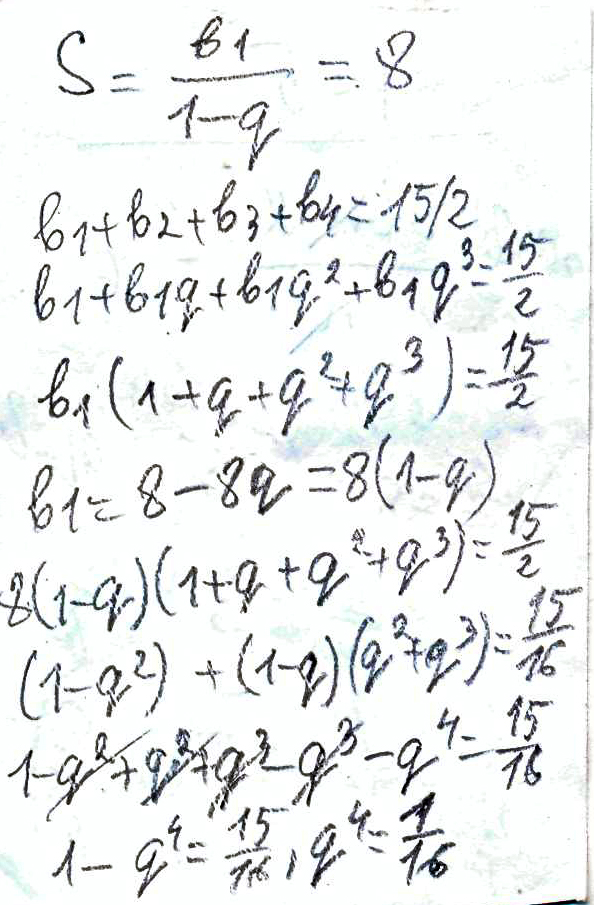 S = в1/(1-q) = 8
в1+в2+в3+в4=15/2
в1+в1q+в1q²+в1q³=15/2
в1(1+q+q²+q³)=15/2
в1=8-8q=8(1-q)
8(1-q)(1+q+q²+q³)=15/2
(1-q²)+(1-q)(q²+q³)=15/16
1-q²+q²+q³-q³-q⁴=15/16
1-q⁴=15/16, q⁴=1/16